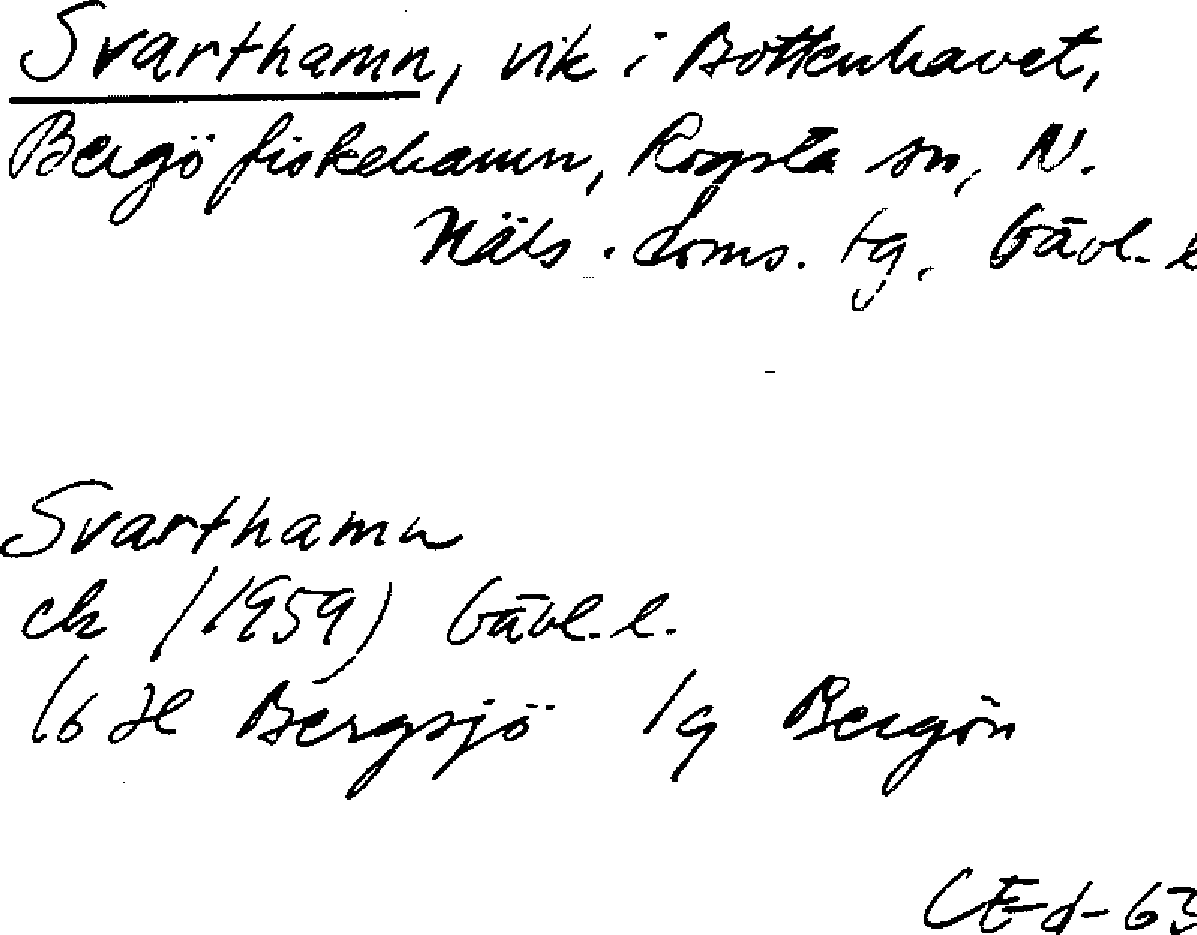 Svarthamn, vik i Bottenhavet,
Bergö fiskehamn, Rogsta sn, N.
Häls. doms. tg. Gävl. l
Svarthamn
ek (1959) Gävl. l.
16 H Bergsjö 1g Bergön
CEd-63